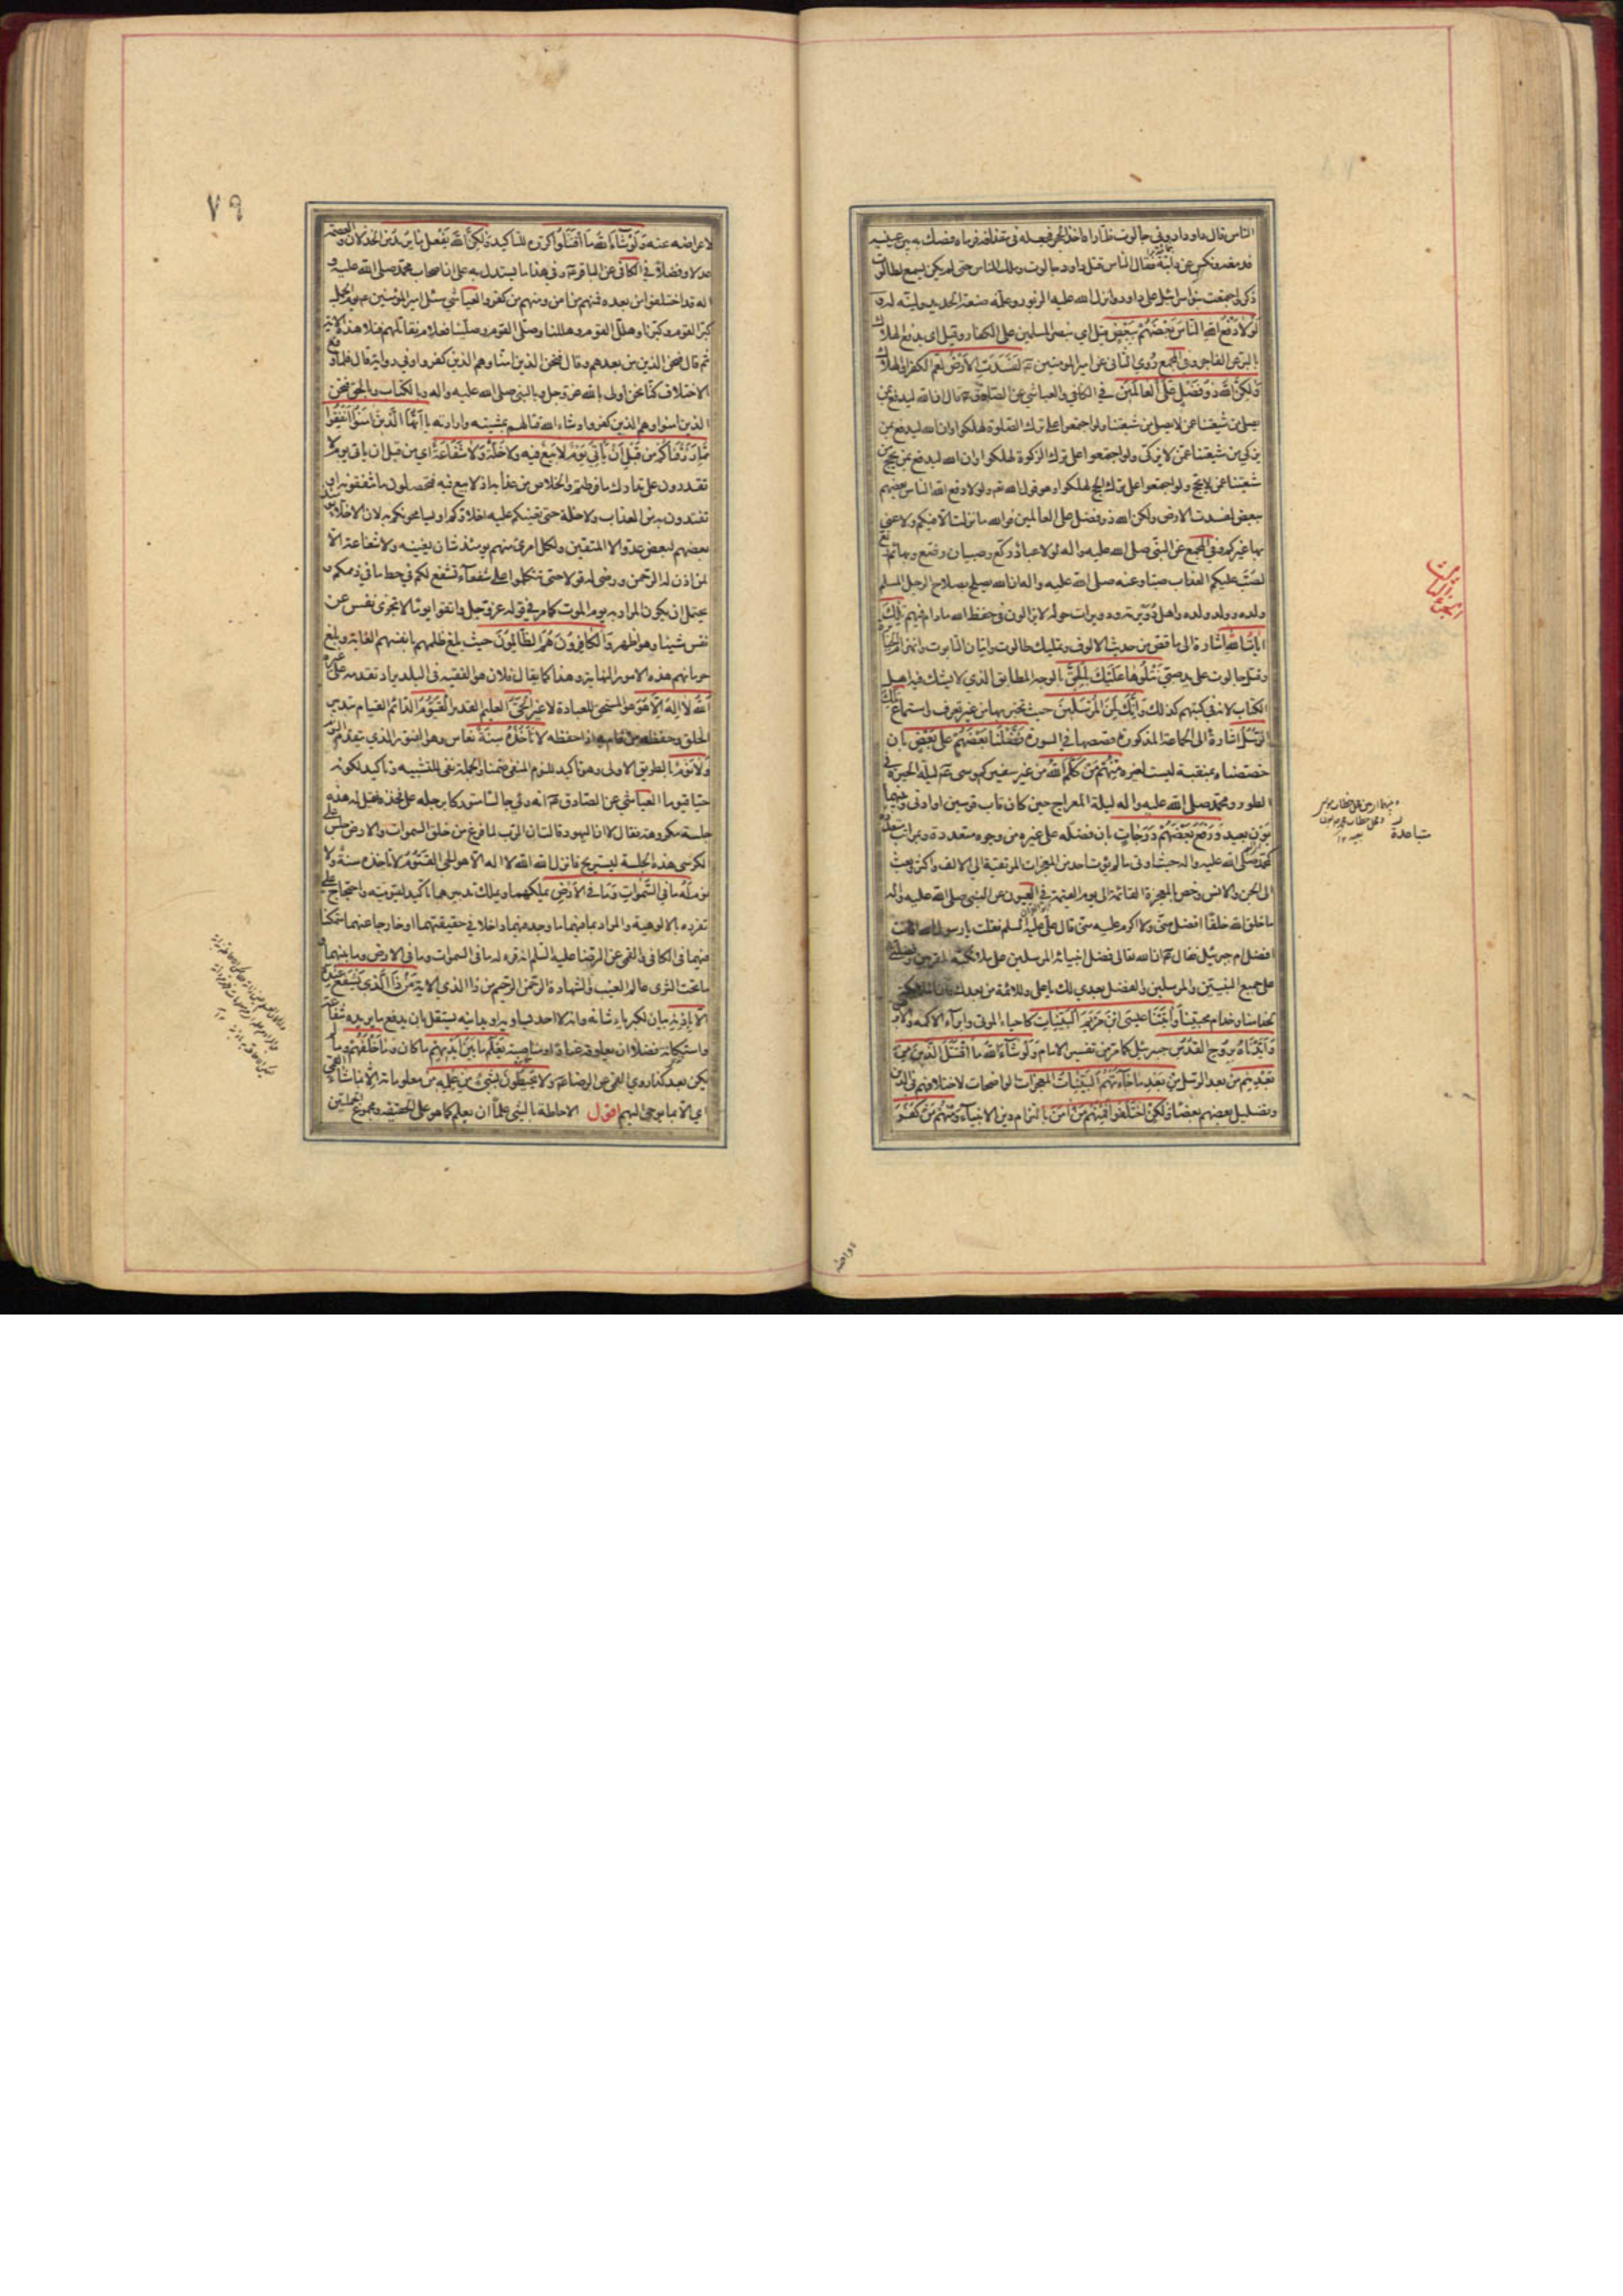 الناس قال داود اروني جالوت فلما راه اخذ الحجر فجعله في مقذافه فرماه فصك به بين عينيه
فدمغه ونكس عن دابته فقال الناس قتل داود جالوت وملك الناس حتى لم يكن يسمع لطالوت
ذكر واجتمعت بنو اسرائيل على داود وانزل الله عليه الزبور وعلمه صنعة الحديد ولينه له
وَلَوْلا دَفْعُ اللهِ النّاسَ بَعْضَهُمْ بِبَعْضٍ قيل اي بنصر المسلمين على الكفار وقيل اي يدفع الهلاك
بالبر عن الفاجر وفي المجمع روي الثاني عن امير المؤمنين ع لَفَسَدَتِ الاَرْضُ لعم الكفر الهلاك
وَلكِنَّ اللهَ ذُو فَضْلٍ عَلَى العالَمينَ في الكافي والعياشي عن الصادق ع قال ان الله ليدفع بمن
يصلي من شيعتنا عمن لا يصلي من شيعتنا ولو اجتمعوا على ترك الصلوة لهلكوا وان الله ليدفع بمن
يزكي من شيعتنا عمن لا يزكي ولو اجتمعوا على ترك الزكوة لهلكوا وان الله ليدفع بمن يحج من
شيعتنا عمن لا يحج ولو اجتمعوا على ترك الحج لهلكوا وهو قول الله عز ولولا دفع الله الناس بعضهم
ببعض لفسدت الارض ولكن الله ذو فضل على العالمين فوالله ما نزلت الا فيكم ولا عني
بها غيركم وفي المجمع عن النبي صلى الله عليه واله لولا عباد ركع وصبيان رضع وبهائم رتع
لصب عليكم العذاب صبا وعنه صلى الله عليه واله ان الله يصلح بصلاح الرجل المسلم
ولده وولد ولده واهل دويرته ودويرات حوله لا يزالون في حفظ الله ما دام فيهم تِلْكَ
اياتُ اللهِ اشارة الى ما قص من حديث الالوف وتمليك طالوت واتيان التابوت وانهزام الجبابرة
وقتل جالوت على يد صبي نَتْلُوها عَلَيْكَ بِالْحَقِّ بالوجه المطابق الذي لا يشك فيه اهل
الكتاب لانه في كتبهم كذلك وَاِنَّكَ لَمِنَ الْمُرْسَلينَ حيث تخبر بها من غير تعرف واستماع تِلْكَ
الرُّسُلُ اشارة الى الجماعة المذكورة قصصها في السورة فَضَّلْنا بَعْضَهُمْ عَلى بَعْضٍ بان
خصصناه بمنقبة ليست لغيره مِنْهُمْ مَنْ كَلَّمَ اللهُ من غير سفير كموسى ع ليلة الحيرة في
الطور ومحمد صلى الله عليه واله ليلة المعراج حين كان قاب قوسين او ادنى وبينهما
بون بعيد وَرَفَعَ بَعْضَهُمْ دَرَجاتٍ بان فضله على غيره من وجوه متعددة وبمراتب متباعدة
كمحمد صلى الله عليه واله حيث اوتي ما لم يؤت احد من المعجزات المرتقية الى الالف واكثر وبعث
الى الجن والانس وخص بالمعجزة القائمة الى يوم القيمة في العيون عن النبي صلى الله عليه واله
ما خلق الله خلقا افضل مني ولا اكرم عليه مني قال علي عليه السلم فقلت يا رسول الله افانت
افضل ام جبرئيل فقال ع ان الله تعالى فضل انبيائه المرسلين على ملائكته المقربين وفضلني
على جميع النبيين والمرسلين والفضل بعدي لك يا علي وللائمة من بعدك وان الملائكة
لخدامنا وخدام محبينا وَاتَيْنا عيسَى ابْنَ مَرْيَمَ الْبَيِّناتِ كاحياء الموتى وابراء الاكمه والابرص
وَاَيَّدْناهُ بِرُوحِ الْقُدُسِ جبرئيل كما مر من تفسير الامام وَلَوْ شاءَ اللهُ مَا اقْتَتَلَ الَّذينَ مِنْ
بَعْدِهِمْ من بعد الرسل مِنْ بَعْدِ ما جاءَتْهُمُ الْبَيِّناتُ المعجزات الواضحات لاختلافهم في الدين
وتضليل بعضهم بعضا وَلكِنِ اخْتَلَفُوا فَمِنْهُمْ مَنْ امَنَ بالتزام دين الانبياء وَمِنْهُمْ مَنْ كَفَرَ
متباعدة
٧٩
لاعراضه عنه وَلَوْ شاءَ اللهُ مَا اقْتَتَلُوا كرره للتاكيد وَلكِنَّ اللهَ يَفْعَلُ ما يُريدُ من الخذلان والعصمة
عدلا وفضلا في الكافي عن الباقر ع وفي هذا ما يستدل به على ان اصحاب محمد صلى الله عليه و
اله قد اختلفوا من بعده فمنهم من امن ومنهم من كفر والعياشي سئل امير المؤمنين ع يوم الجمل
كبر القوم وكبرنا وهلل القوم وهللنا وصلى القوم وصلينا فعلام نقاتلهم فتلا هذه الاية
ثم قال فنحن الذين من بعدهم وقال فنحن الذين امنا وهم الذين كفروا وفي رواية قال فلما وقع
الاختلاف كنا نحن اولى بالله عز وجل وبالنبي صلى الله عليه واله وبالكتاب وبالحق فنحن
الذين امنوا وهم الذين كفروا وشاء الله قتالهم بمشيته وارادته يا اَيُّهَا الَّذينَ امَنُوا اَنْفِقُوا
مِمّا رَزَقْناكُمْ مِنْ قَبْلِ اَنْ يَأْتِيَ يَوْمٌ لا بَيْعٌ فيهِ وَلا خُلَّةٌ وَلا شَفاعَةٌ اي من قبل ان ياتي يوم لا
تقدرون على تدارك ما فرطتم والخلاص من عذابه اذ لا بيع فيه فتحصلون ما تنفقونه او
تفتدون به من العذاب ولا خلة حتى تعينكم عليه اخلاؤكم او يسامحونكم به لان الاخلاء
بعضهم لبعض عدو الا المتقين ولكل امرئ منهم يومئذ شان يغنيه ولا شفاعة الا
لمن اذن له الرحمن ورضي له قولا حتى تتكلوا على شفعاء تشفع لكم في حط ما في ذممكم و
يحتمل ان يكون المراد به يوم الموت كما مر في قوله عز وجل واتقوا يوما لا تجزي نفس عن
نفس شيئا وهو اظهر وَالْكافِرُونَ هُمُ الظّالِمُونَ حيث بلغ ظلمهم بانفسهم الغاية وبلغ
حرمانهم هذه الامور النهاية وهذا كما يقال فلان هو الفقيه في البلد يراد تقدمه على غيره
اَللهُ لا اِلهَ اِلاّ هُوَ هو المستحق للعبادة لا غير الْحَيُّ العليم القدير الْقَيُّومُ الدائم القيام بتدبير
الخلق وحفظه من قام به اذا حفظه لا تَأْخُذُهُ سِنَةٌ نعاس وهو الفتور الذي يتقدم النوم
وَلا نَوْمٌ بالطريق الاولى وهو تاكيد للنوم المنفي ضمنا والجملة نفي للتشبيه وتاكيد لكونه
حيا قيوما العياشي عن الصادق ع انه رئي جالسا متوركا برجله على فخذه فقيل له هذه
جلسة مكروهة فقال لا ان اليهود قالت ان الرب لما فرغ من خلق السموات والارض جلس على
الكرسي هذه الجلسة ليستريح فانزل الله الله لا اله الا هو الحي القيوم لا تاخذه سنة ولا
نوم لَهُ ما فِي السَّمواتِ وَما فِي الاَرْضِ يملكهما ويملك تدبيرهما تاكيد لقيوميته واحتجاج على
تفرده بالالوهية والمراد بما فيهما ما وجد فيهما داخلا في حقيقتهما او خارجا عنهما متمكنا
فيهما في الكافي والقمي عن الرضا عليه السلم انه قرء له ما في السموات وما في الارض وما بينهما و
ما تحت الثرى عالم الغيب والشهادة الرحمن الرحيم من ذا الذي الاية مَنْ ذَا الَّذي يَشْفَعُ عِنْدَهُ
اِلاّ بِاِذْنِهِ بيان لكبرياء شانه وانه لا احد يساويه او يدانيه يستقل بان يدفع ما يريده شفاعة
واستكانة فضلا ان يعاوقه عنادا او مناصبة يَعْلَمُ ما بَيْنَ اَيْديهِمْ ما كان وَما خَلْفَهُمْ وما لم
يكن بعد كذا روي القمي عن الرضا ع وَلا يُحيطُونَ بِشَيْءٍ مِنْ عِلْمِهِ من معلوماته اِلاّ بِما شاءَ القمي
اي الا بما يوحي اليهم اقول الاحاطة بالشيء علما ان يعلم كما هو على الحقيقة ومجموع الجملتين